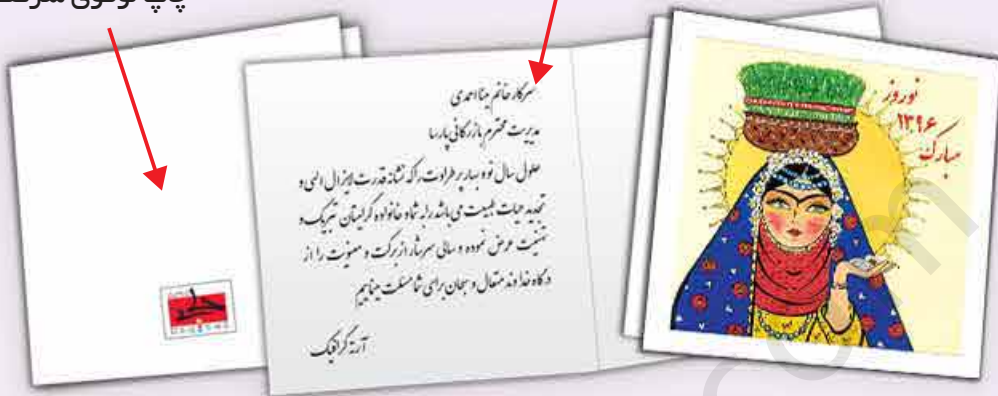 چاپ لوگوی شرکت
سرکار خانم مینا احمدی
مدیریت محترم بازرگانی پارسا
حلول سال نو و بهار پر طراوت را که نشانه قدرت لایزال الهی و
تجدید حیات طبیعت می باشد را به شما و خانواده گرامیتان تبریک و
تهنیت عرض نموده و سالی سرشار از برکت و معنویت را از
درگاه خداوند متعال و سبحان برای شما مسئلت مینماییم
گرافیک
نوروز
۱۳۹۶
مبارک
com